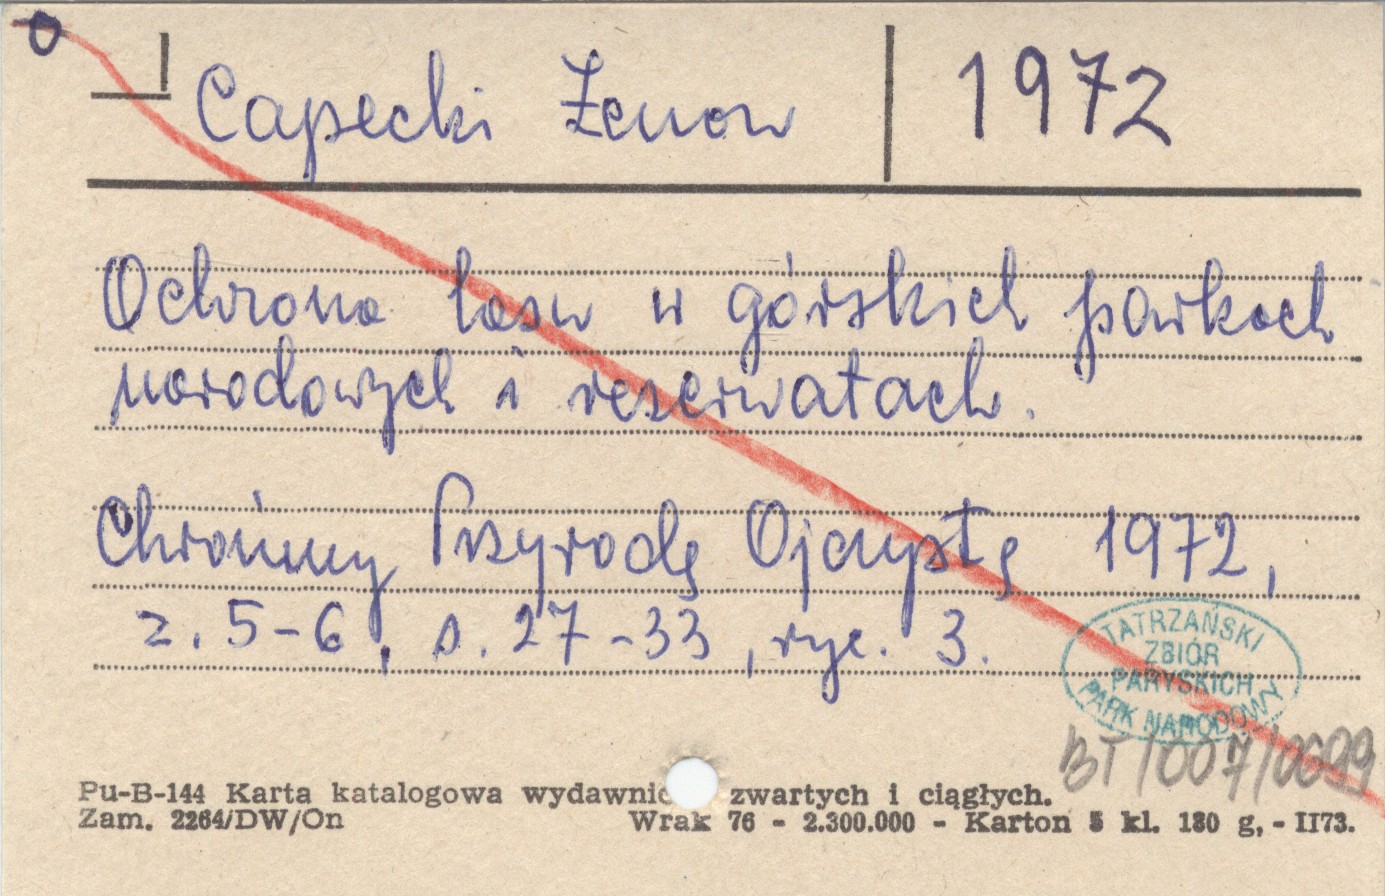 Capecki Zenon 1972
Ochrona lasu w górskich parkach
narodowych i rezerwatach.
Chrońmy Przyrodę Ojczystą 1972,
z. 5-6, s. 27-33, ryc. 3.
TATRZAŃSKI
ZBIÓR
PARYSKICH
PARK NARODOWY
BT/007/0699
Pu-B-144 Karta katalogowa wydawnic zwartych i ciągłych.
Zam. 2264/DW/On Wrak 76 - 2.300.000 - Karton 5 kl. 180 g, - II73.